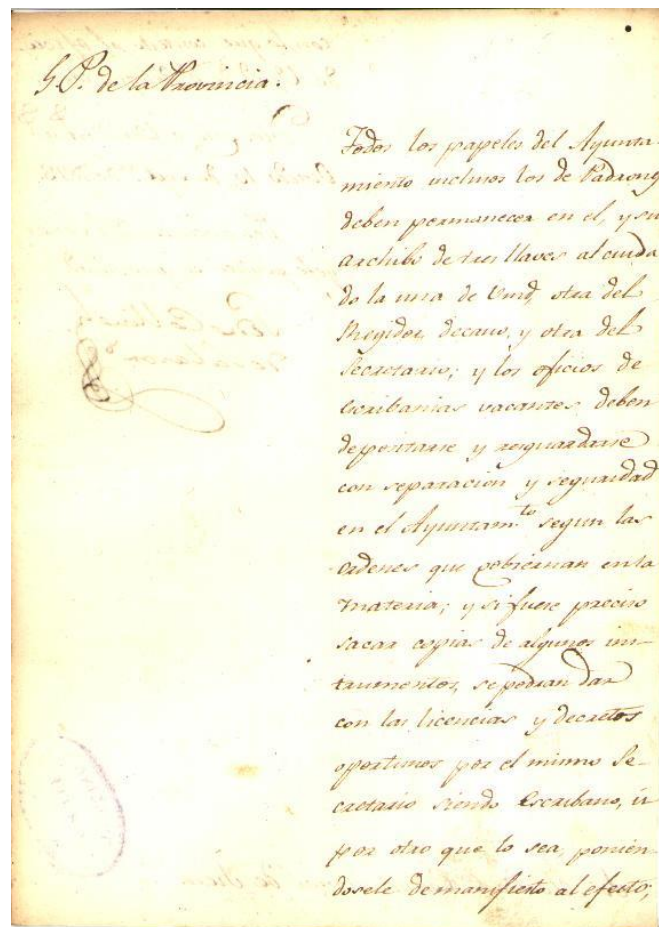 G. P. de la Provincia.
Todos los papeles del Ayunta-
miento inclusos los de Padrones
deben permanecer en el, y su
archibo de tres llaves al cuida
do la una de Vmd, otra del
Regidor decano, y otra del
Secretario; y los oficios de
escribanias vacantes deben
depositarse y resguardarse
con separacion y seguridad
en el Ayuntam.to segun las
ordenes que gobiernan en la
materia; y si fuere preciso
sacar copias de algunos ins-
trumentos, se podran dar
con las licencias y decretos
oportunos por el mismo Se-
cretario siendo Escribano, ú
por otro que lo sea, ponien-
dosele de manifiesto al efecto;